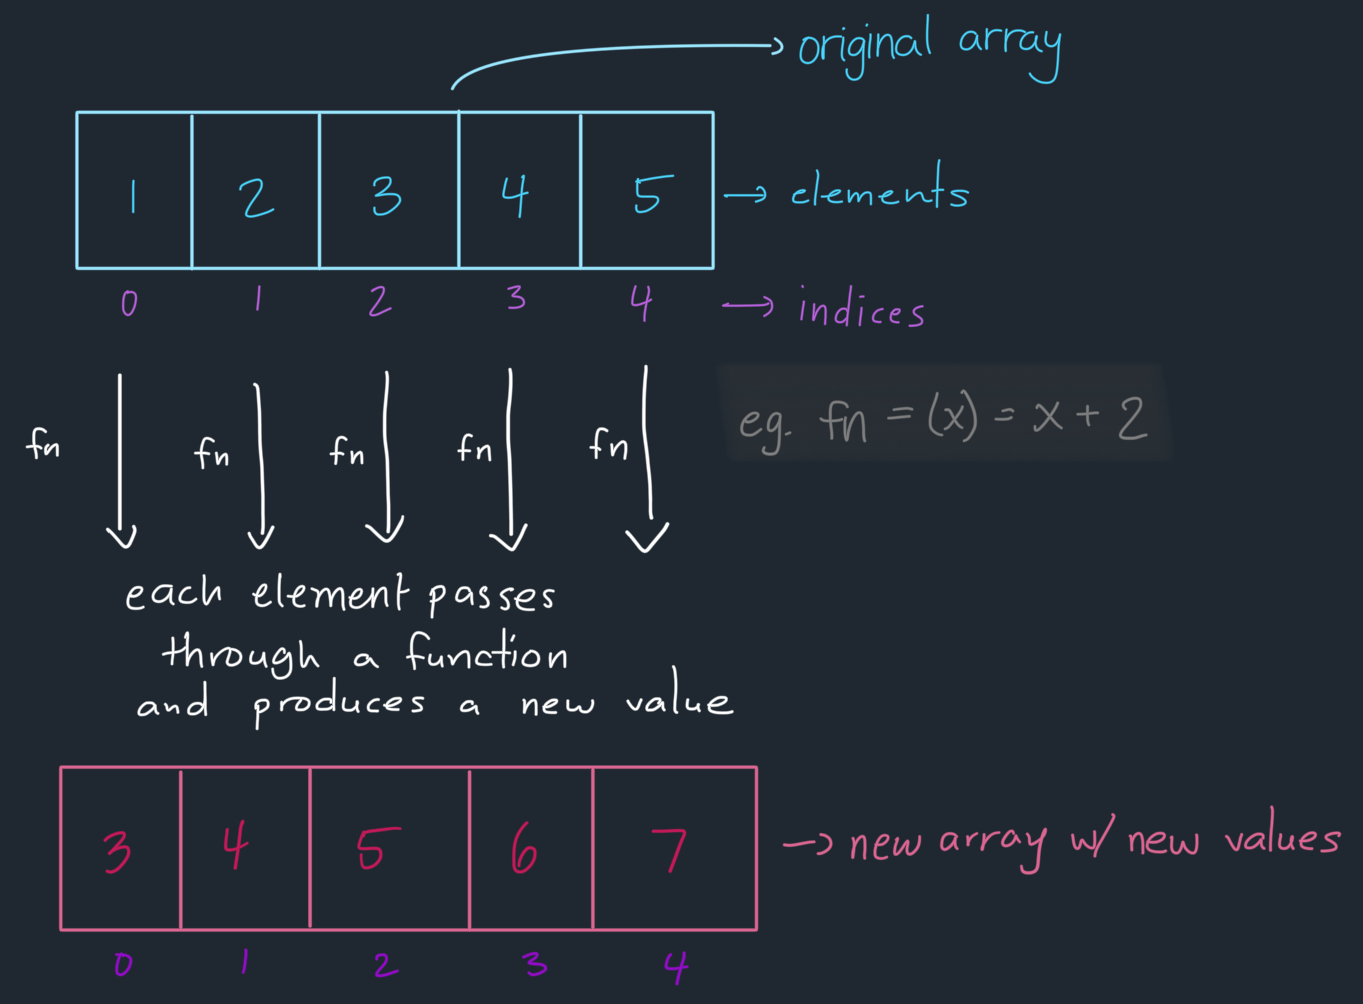 original array
1 2 3 4 5 → elements
0 1 2 3 4 → indices
fn fn fn fn fn
eg. fn = (x) = x + 2
each element passes
through a function
and produces a new value
3 4 5 6 7 → new array w/ new values
0 1 2 3 4